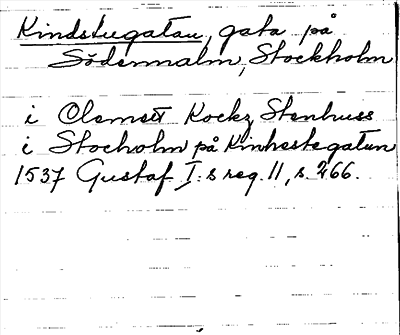 Kindstugatan, gata på
Södermalm, Stockholm
i Olemett Kockz Stenhuss
i Stocholm på Kinhestegatun
1537 Gustaf I:s reg. 11, s. 266.